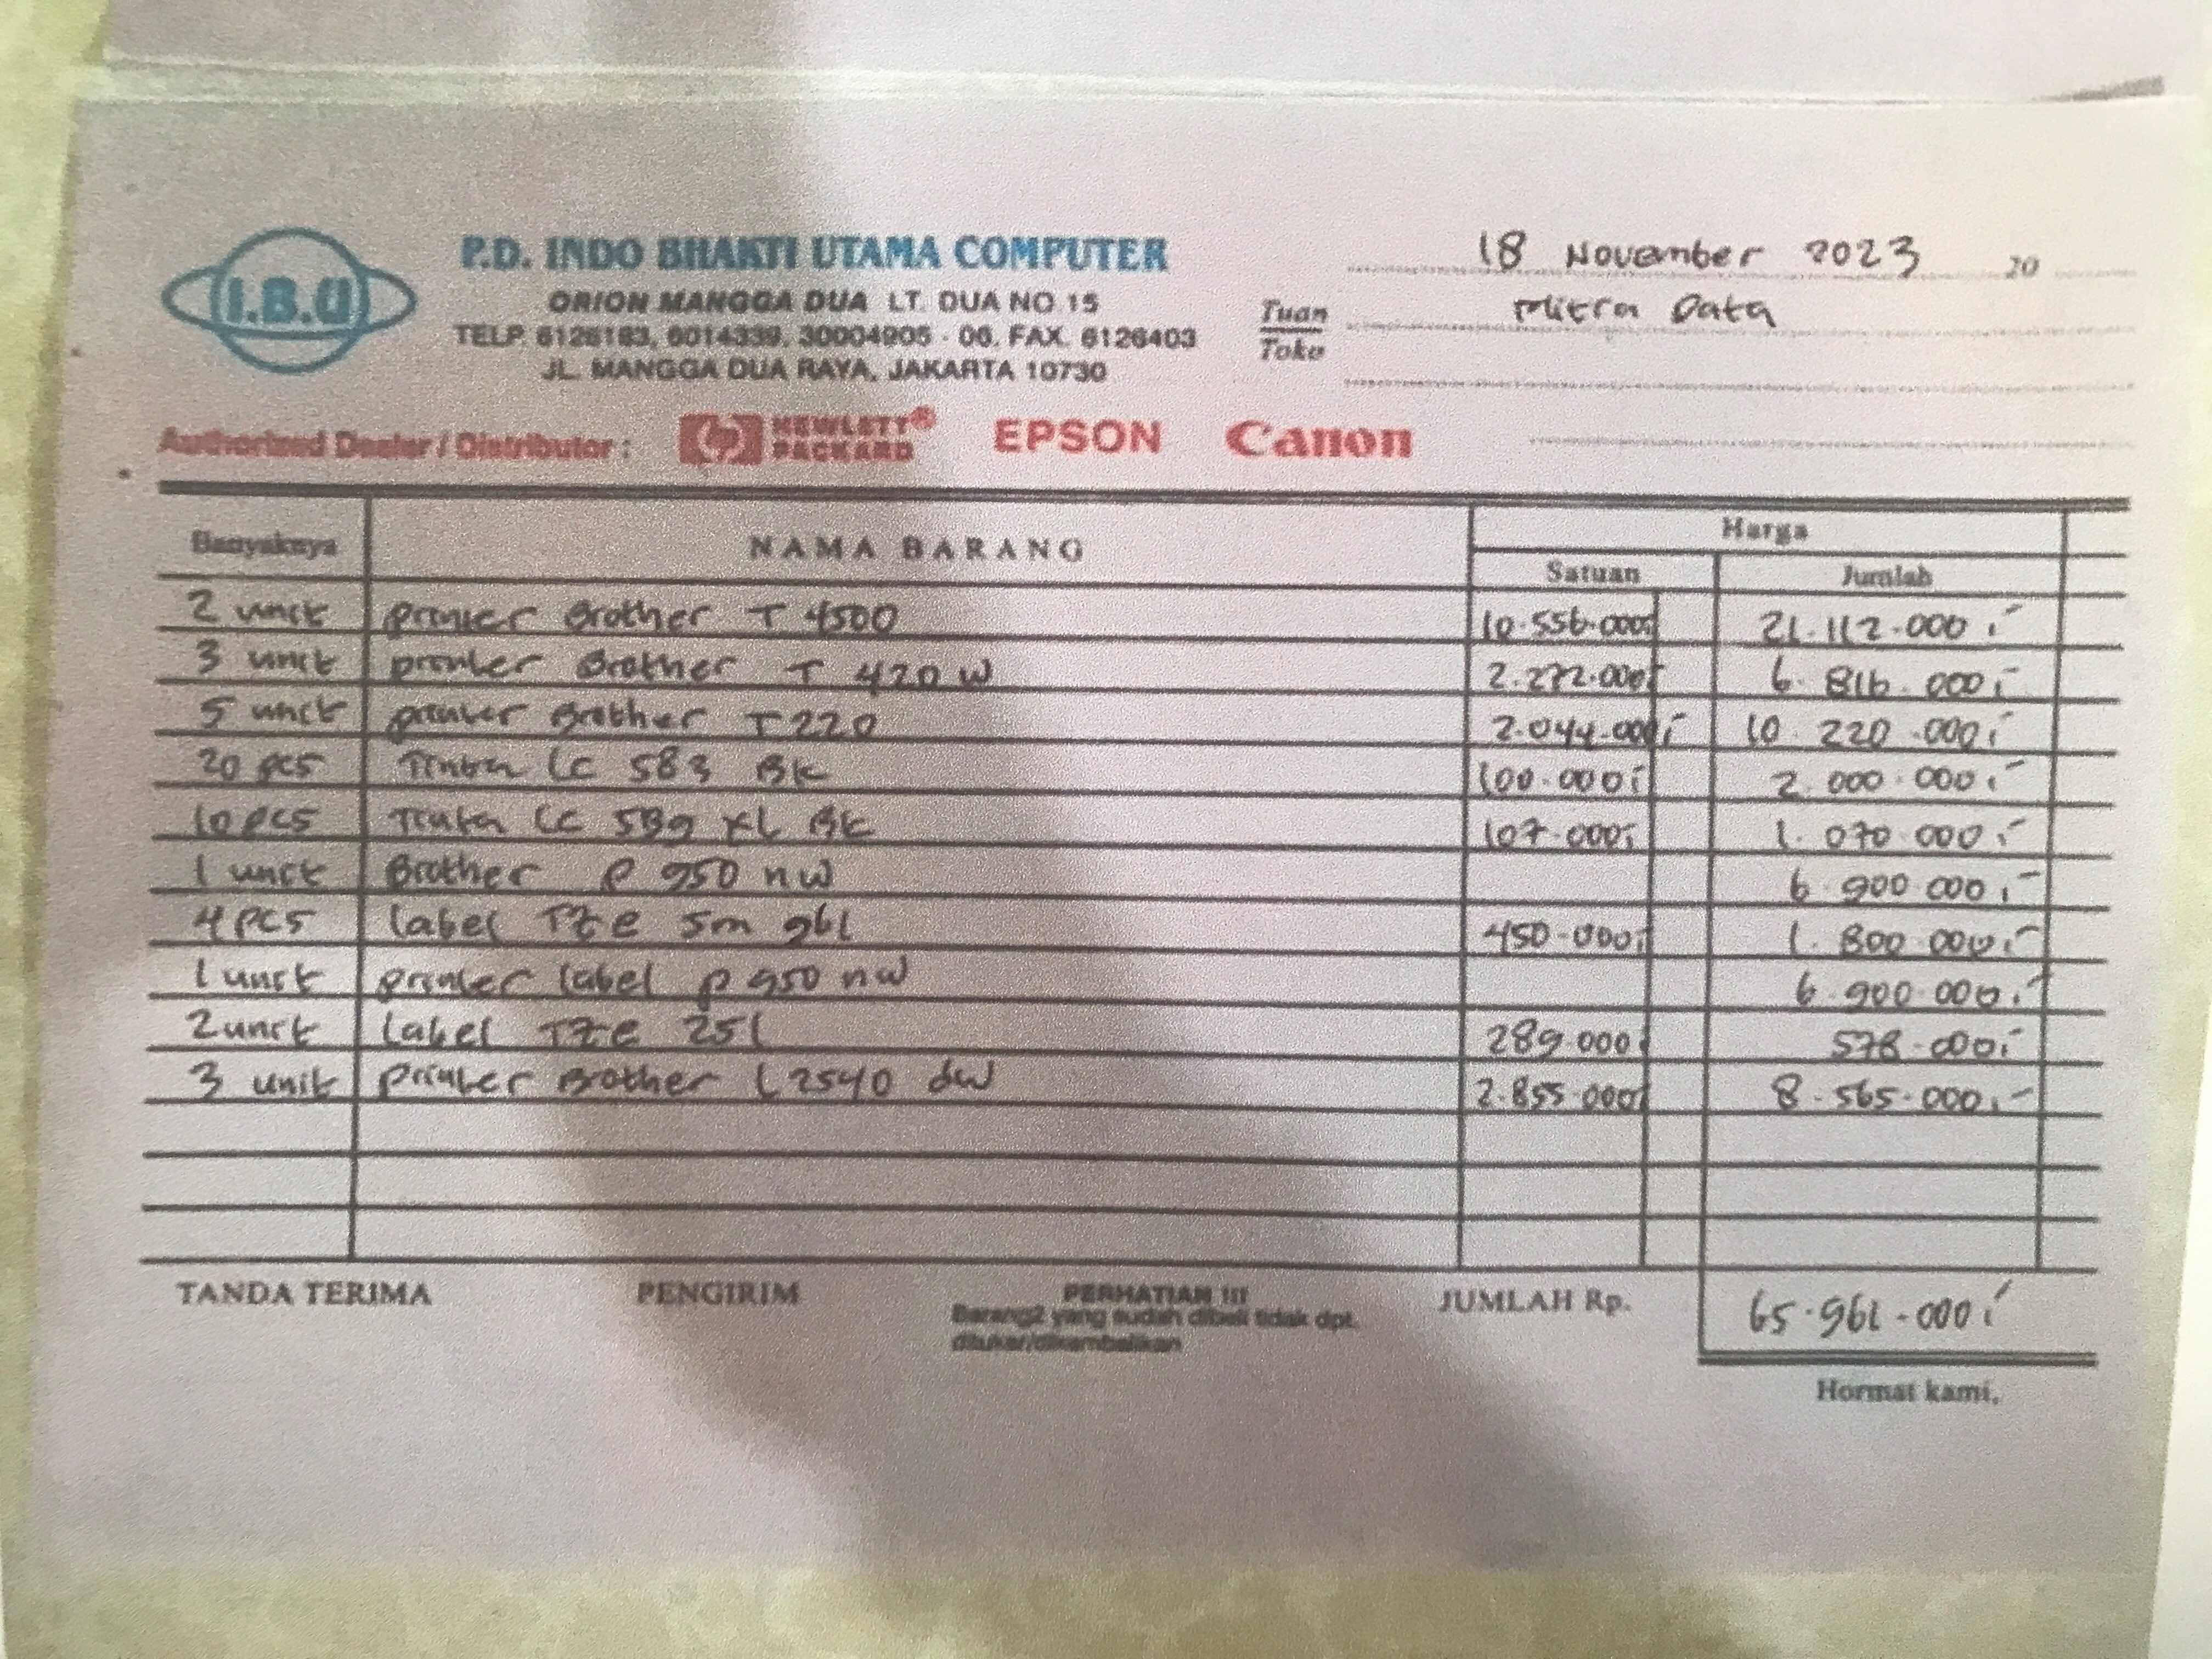 I.B.U
P.D. INDO BHAKTI UTAMA COMPUTER
ORION MANGGA DUA LT. DUA NO 15
TELP. 6126183, 6014339, 30004905 - 06, FAX. 6126403
JL. MANGGA DUA RAYA, JAKARTA 10730
18 November 2023 20
Tuan
Toko
Mitra Data
Authorized Dealer / Distributor : hp HEWLETT® PACKARD EPSON Canon
Banyaknya NAMA BARANG Harga
Satuan Jumlah
2 unit printer Brother T 4500 10.556.000,- 21.112.000,-
3 unit printer Brother T 420 W 2.272.000,- 6.816.000,-
5 unit printer Brother T220 2.044.000,- 10.220.000,-
20 pcs Tinta LC 583 BK 100.000,- 2.000.000,-
10 pcs Tinta LC XL BK 107.000,- 1.070.000,-
1 unit Brother P 950 nw 6.900.000,-
4 PCS label TZe 5m 961 450.000,- 1.800.000,-
1 unit printer label p 950 nw 6.900.000,-
2 unit Label TZe 251 289.000,- 578.000,-
3 unit printer Brother L2540 dw 2.855.000,- 8.565.000,-
TANDA TERIMA PENGIRIM PERHATIAN !!! JUMLAH Rp. 65.961.000,-
Barang2 yang sudah dibeli tidak dpt.
ditukar/dikembalikan
Hormat kami,